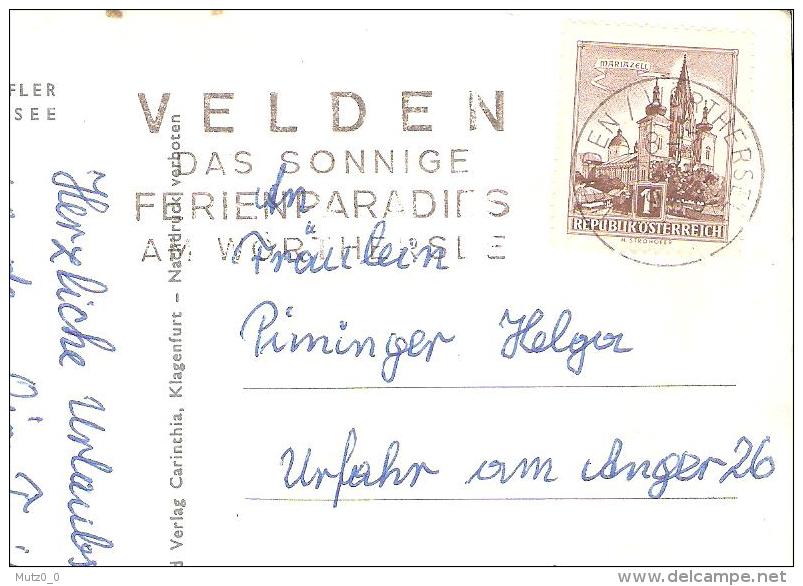 FLER
SEE
VELDEN
DAS SONNIGE
FERIENPARADIES
AM WÖRTHERSEE
MARIAZELL
1S
REPUBLIK ÖSTERREICH
H. STROHOFER
VELDEN WÖRTHERSEE
An
Fräulein
Piminger Helga
Urfahr am Anger 26
Herzliche Urlaubs
d Verlag Carinthia, Klagenfurt – Nachdruck verboten
Mutz0_0
delcampe.net